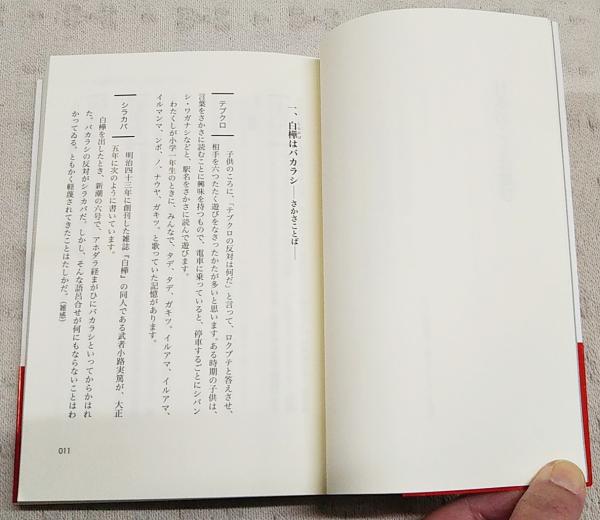 一、白樺はバカラシ──さかさことば──
テブクロ
子供のころに、「テブクロの反対は何だ」と言って、ロクブテと答えさせ、
相手を六つたたく遊びをなさったかたが多いと思います。ある時期の子供は、
言葉をさかさに読むことに興味を持つもので、電車に乗っていると、停車するごとにシバン
シ・ワガナシなどと、駅名をさかさに読んで遊びます。
わたくしが小学一年生のときに、みんなで、タデ、タデ、ガキツ。イルアマ、イルアマ、
イルマンマ、ンボ、ノ、ナウヤ、ガキツ。と歌っていた記憶があります。
シラカバ
明治四十三年に創刊した雑誌『白樺』の同人である武者小路実篤が、大正
五年に次のように書いています。
白樺を出したとき、新潮の六号で、アホダラ経まがひにバカラシといってからかはれ
た。バカラシの反対がシラカバだ。しかし、そんな語呂合せが何にもならないことはわ
かってゐる。ともかく軽蔑されてきたことはたしかだ。（雑感）
011